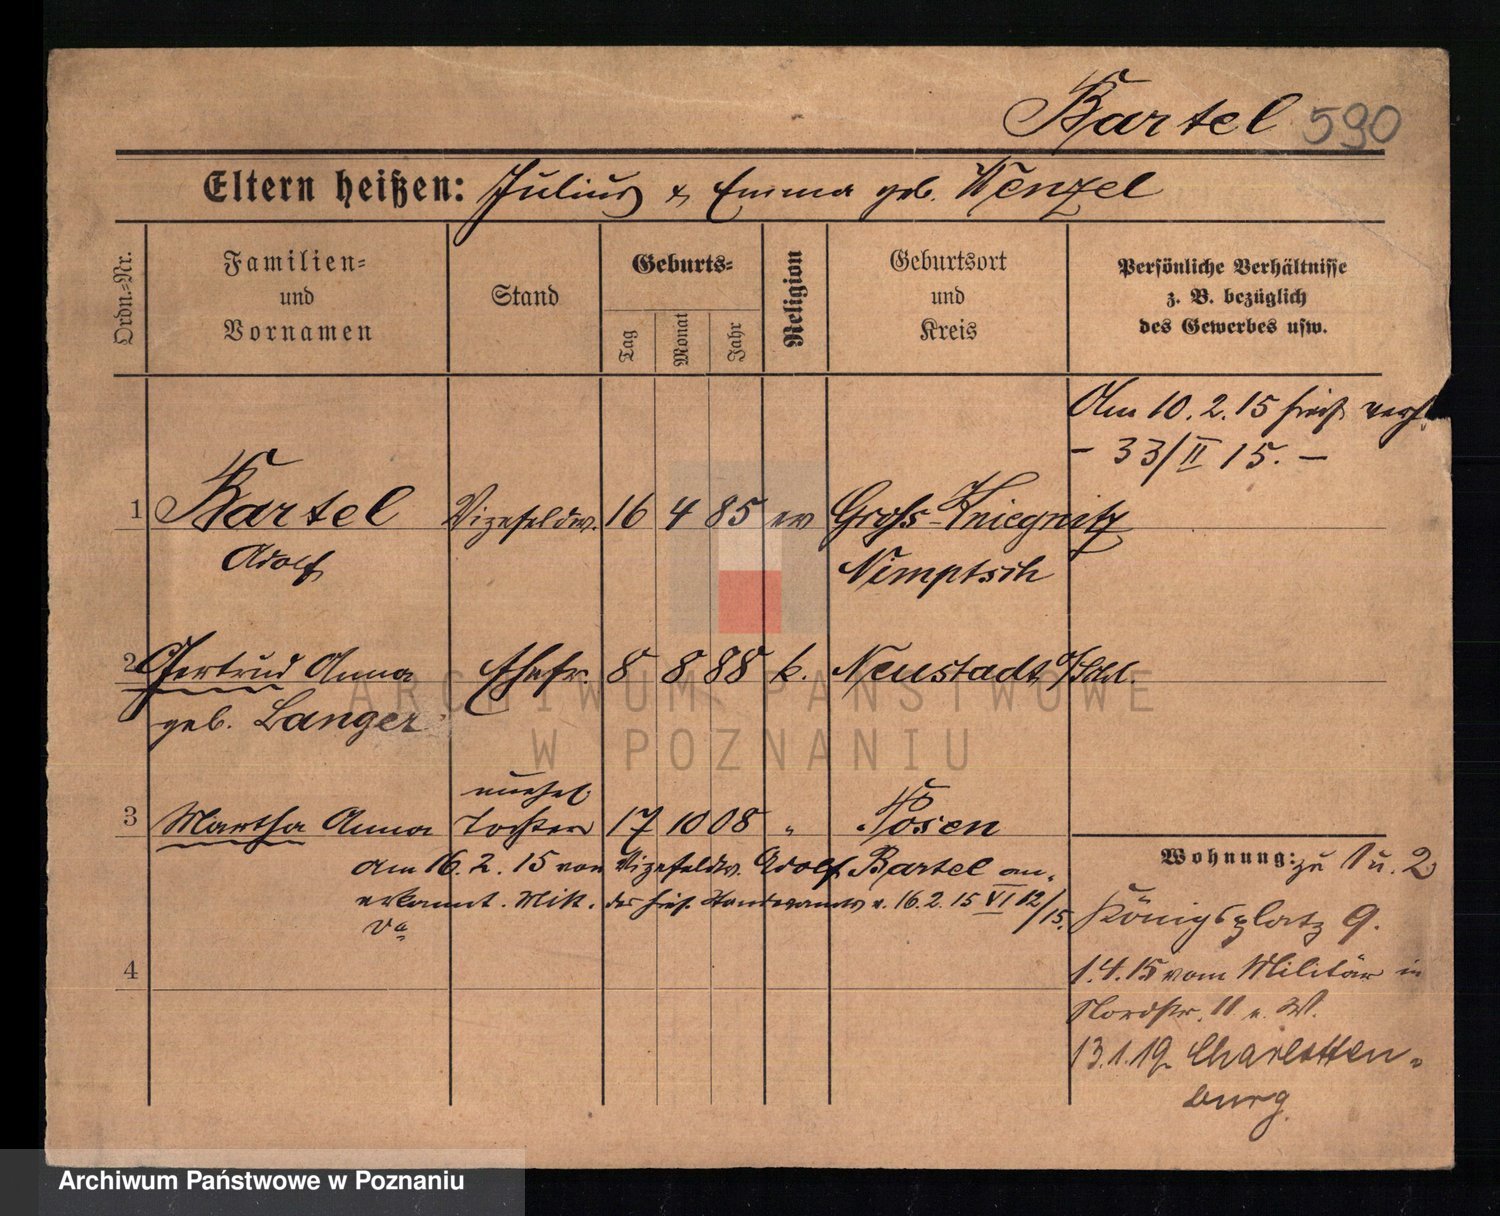 Bartel 590
Eltern heißen: Julius & Emma geb. Wenzel
Ordn.-Nr.
Familien-
und
Vornamen
Stand
Geburts-
Tag
Monat
Jahr
Religion
Geburtsort
und
Kreis
Persönliche Verhältnisse
z. B. bezüglich
des Gewerbes usw.
Am 10. 2. 15 hier verh.
- 33/II 15. -
1 Bartel Vizefeldw. 16 4 85 ev Gross-Kniegnitz
Adolf Nimptsch
2 Gertrud Anna Ehefr. 8 8 88 k. Neustadt O/Schl.
geb. Langer
unehel
3 Martha Anna Tochter 17 10 08 " Posen
am 16. 2. 15 von Vizefeldw. Adolf Bartel an-
erkannt. Mitt. des hies. Standesamts v. 16. 2. 15 VI 12/15.
4
Wohnung: zu 1 u. 2
Königsplatz 9.
1.4.15 vom Militär in
Nordstr. 11 b. W.
13.1.19 Charlotten-
burg
ARCHIWUM PAŃSTWOWE
W POZNANIU
Archiwum Państwowe w Poznaniu